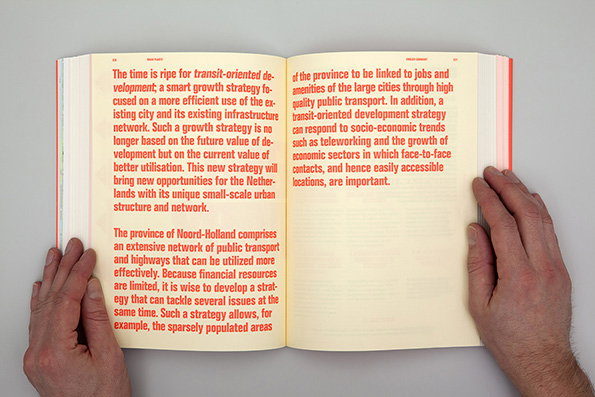 The time is ripe for transit-oriented de-
velopment; a smart growth strategy fo-
cused on a more efficient use of the ex-
isting city and its existing infrastructure
network. Such a growth strategy is no
longer based on the future value of de-
velopment but on the current value of
better utilisation. This new strategy will
bring new opportunities for the Nether-
lands with its unique small-scale urban
structure and network.
The province of Noord-Holland comprises
an extensive network of public transport
and highways that can be utilized more
effectively. Because financial resources
are limited, it is wise to develop a strat-
egy that can tackle several issues at the
same time. Such a strategy allows, for
example, the sparsely populated areas
of the province to be linked to jobs and
amenities of the large cities through high
quality public transport. In addition, a
transit-oriented development strategy
can respond to socio-economic trends
such as teleworking and the growth of
economic sectors in which face-to-face
contacts, and hence easily accessible
locations, are important.